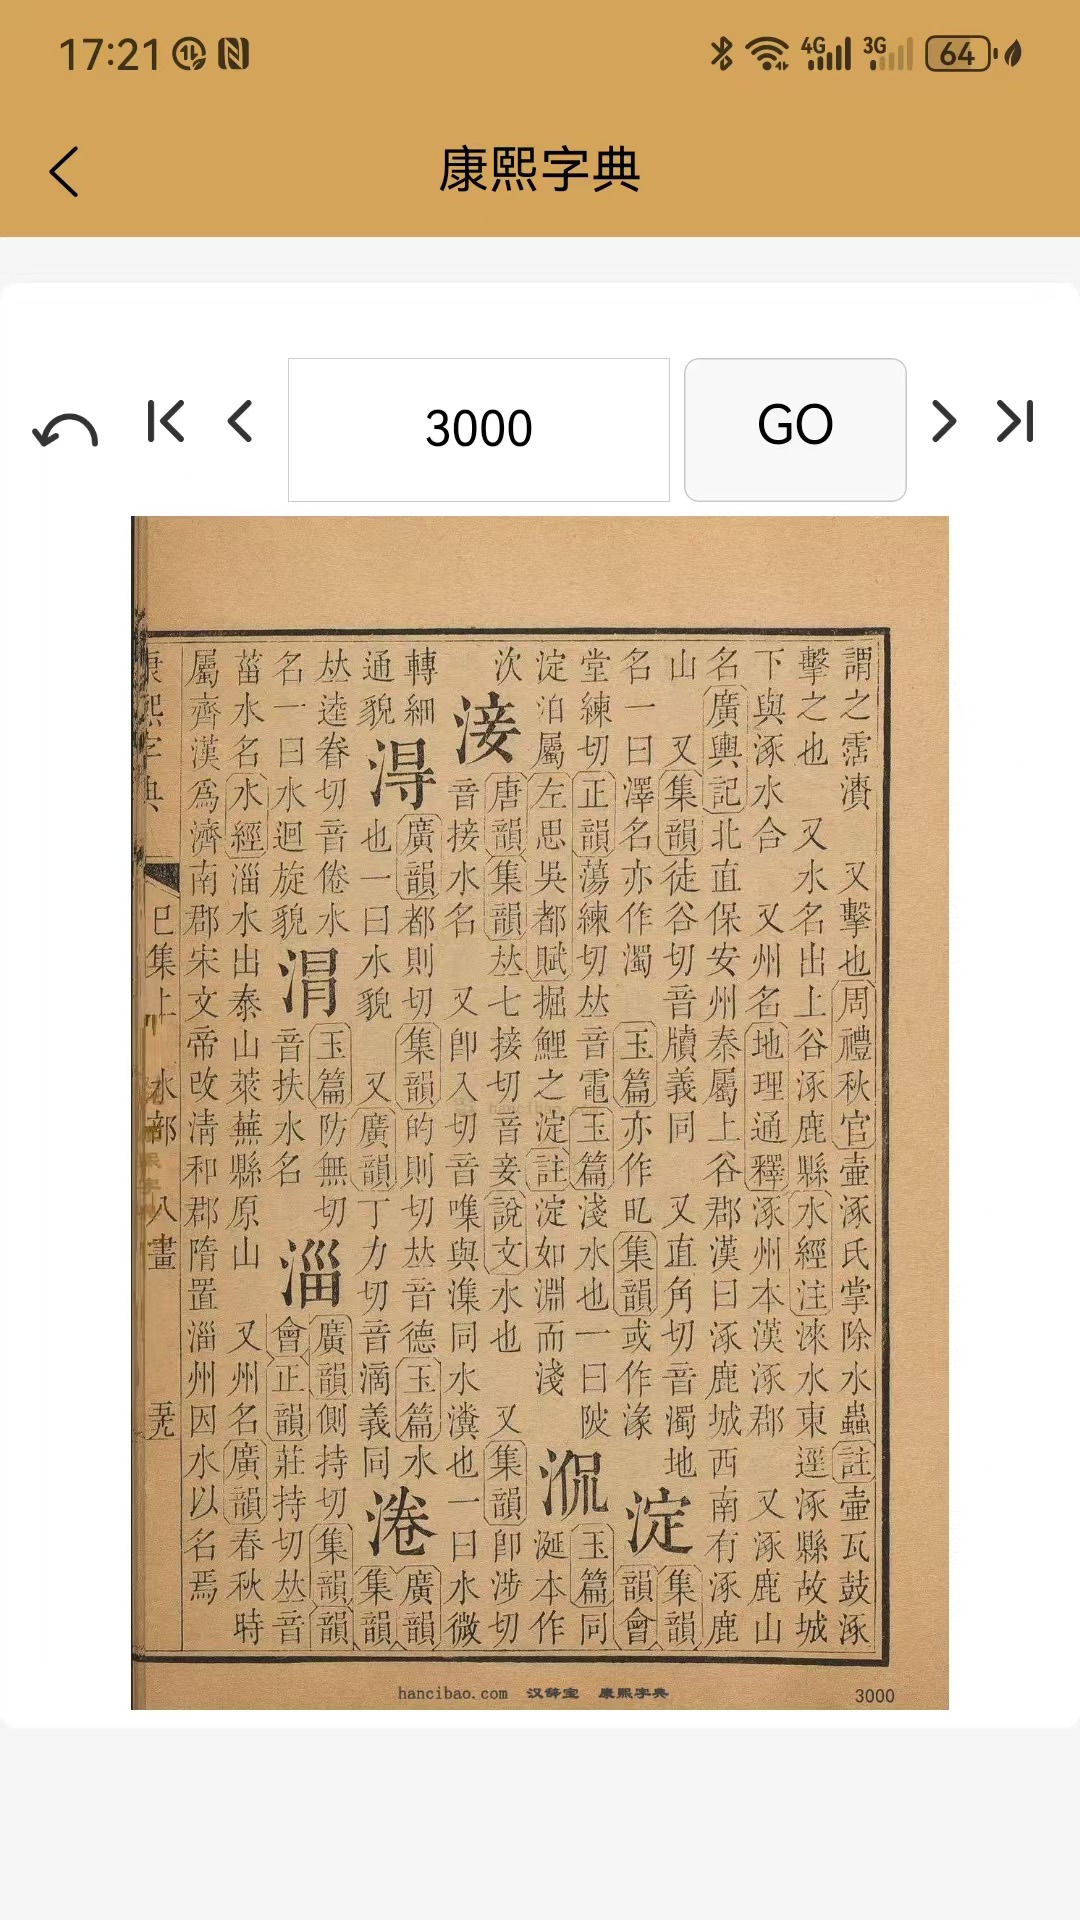 17:21
4G 3G 64
康熙字典
3000 GO
謂之霑漬 又擊也周禮秋官壷涿氏掌除水蟲註壷瓦鼓涿
擊之也 又水名出上谷涿鹿縣水經注淶水東逕涿縣故城
下與涿水合 又州名地理通釋涿州本漢涿郡 又涿鹿山
名廣輿記北直保安州秦屬上谷郡漢曰涿鹿城西南有涿鹿
山 又集韻徒谷切音牘義同 又直角切音濁地
名一曰澤名亦作濁 玉篇亦作 集韻或作湪
淀
集韻
韻會
堂練切正韻蕩練切𠀤音電玉篇淺水也一曰陂
淀泊屬左思吳都賦掘鯉之淀註淀如淵而淺
玉篇同
涎本作
㳄
淁
唐韻集韻𠀤七接切音妾說文水也 又集韻卽涉切
音接水名 又卽入切音㗱與潗同水瀵也一曰水微
轉細
通貌
淂
廣韻都則切集韻的則切𠀤音德玉篇水
也一曰水貌 又廣韻丁力切音滴義同
淃
廣韻
集韻
𠀤逵眷切音倦水
名一曰水迴旋貌
玉篇防無切
音扶水名
淄
廣韻側持切集韻韻
會正韻莊持切𠀤音
菑水名水經淄水出泰山萊蕪縣原山 又州名廣韻春秋時
屬齊漢爲濟南郡宋文帝改淸和郡隋置淄州因水以名焉
康熙字典 巳集上 水部 八畫
hancibao.com 汉辞宝 康熙字典 3000